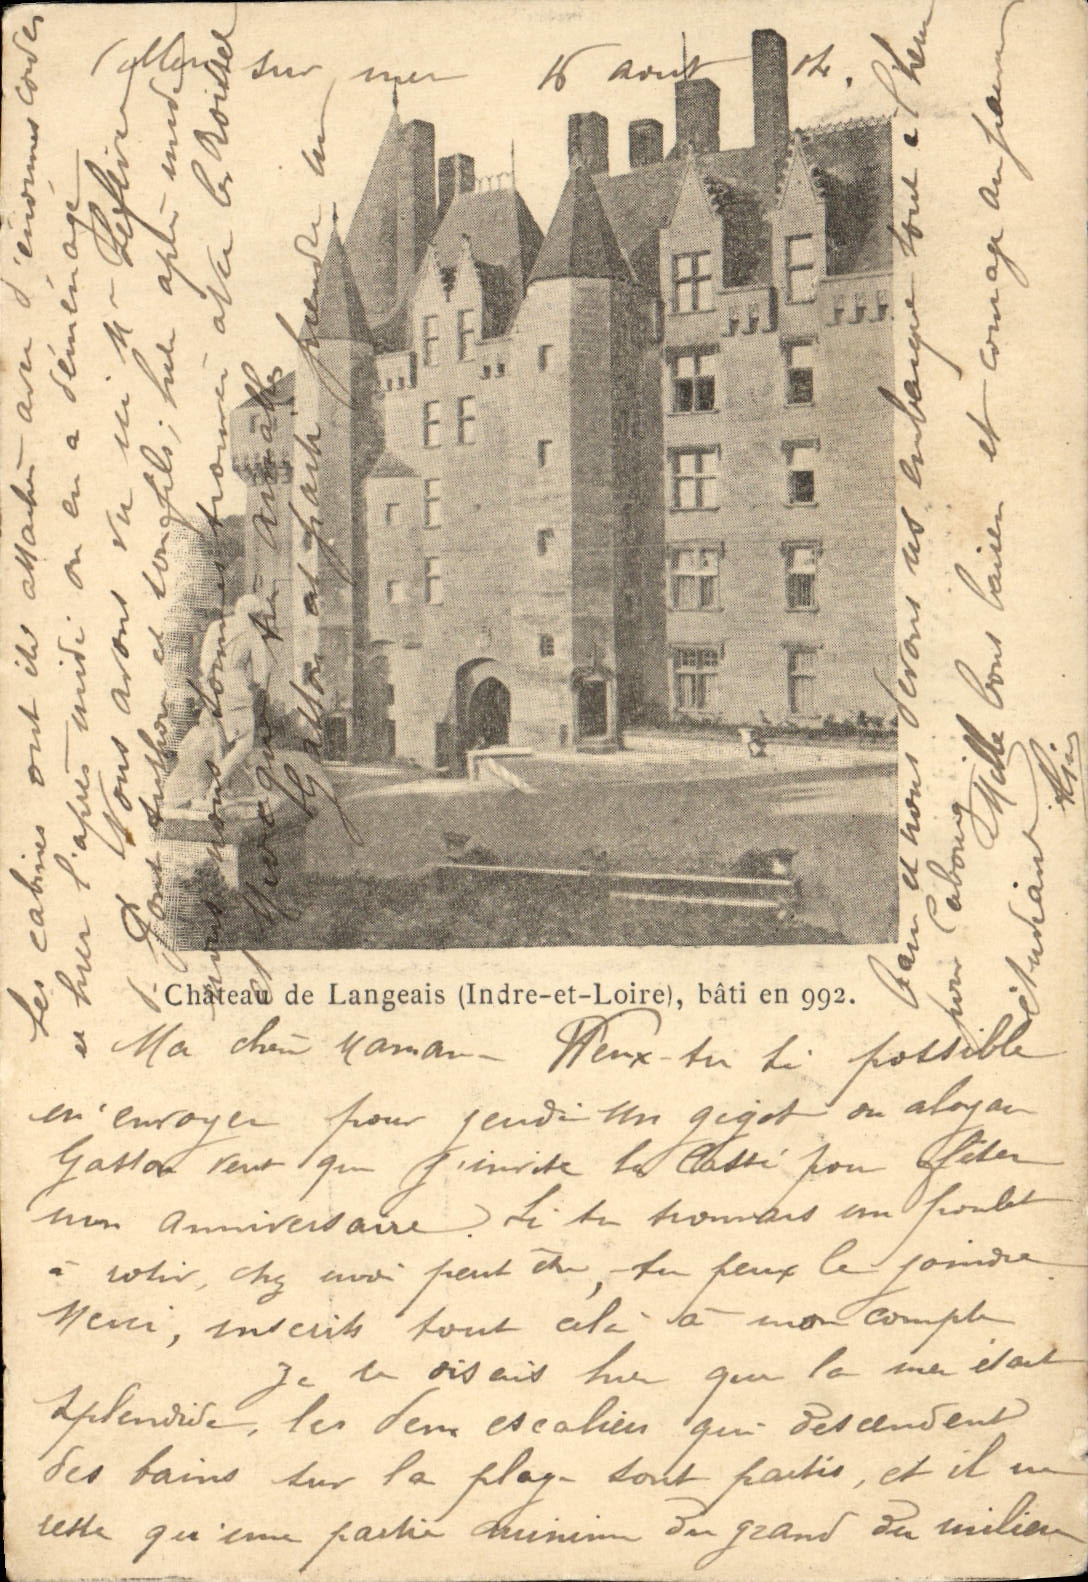 sur mer 16 aout 04.
Château de Langeais (Indre-et-Loire), bâti en 992.
Ma chère Maman - Veux-tu si possible
m'envoyer pour jeudi un gigot ou aloyau
Gaston veut que j'invite les pour fêter
mon anniversaire. Si tu trouvais un poulet
à rôtir, chez moi peut être, tu peux le joindre.
Merci, inscris tout cela à mon compte
Je te disais hier que la mer était
splendide, les deux escaliers qui descendent
des bains sur la plage sont partis, et il ne
reste qu'une partie minime du grand du milieu
Les cabines ont été attachées avec d'énormes cordes
et hier l'après midi on en a déménagé
Nous avons vu ici Mr Lefèvre
et son fils; hier après midi
nous nous sommes trouvés avec les
Gaston est parti prendre un
bain et nous ferons embarque tout à l'heure
pour Cabourg
Mille bons baisers et courage au pauvre
étudiant